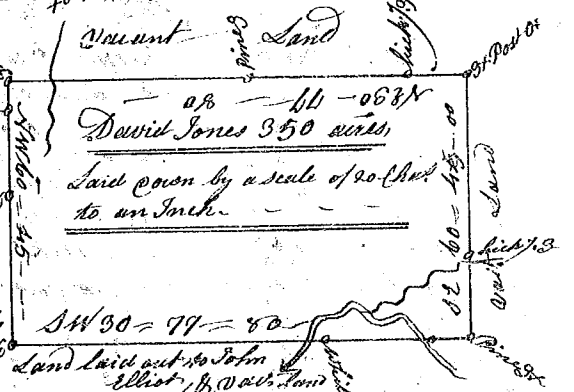 Vacant Land
Pine 3
Hick 73
3x Post Oa
NE 30 - 77 - 80
David Jones 350 acres,
Laid down by a scale of 20 Chs.
to an Inch.
NW 60 = 45 -
SE 60 = 45 - 00
Vac. Land
Hick 73
SW 30 = 77 = 80
Land laid out to John
Elliot, & Vac. Land
Pine 3x